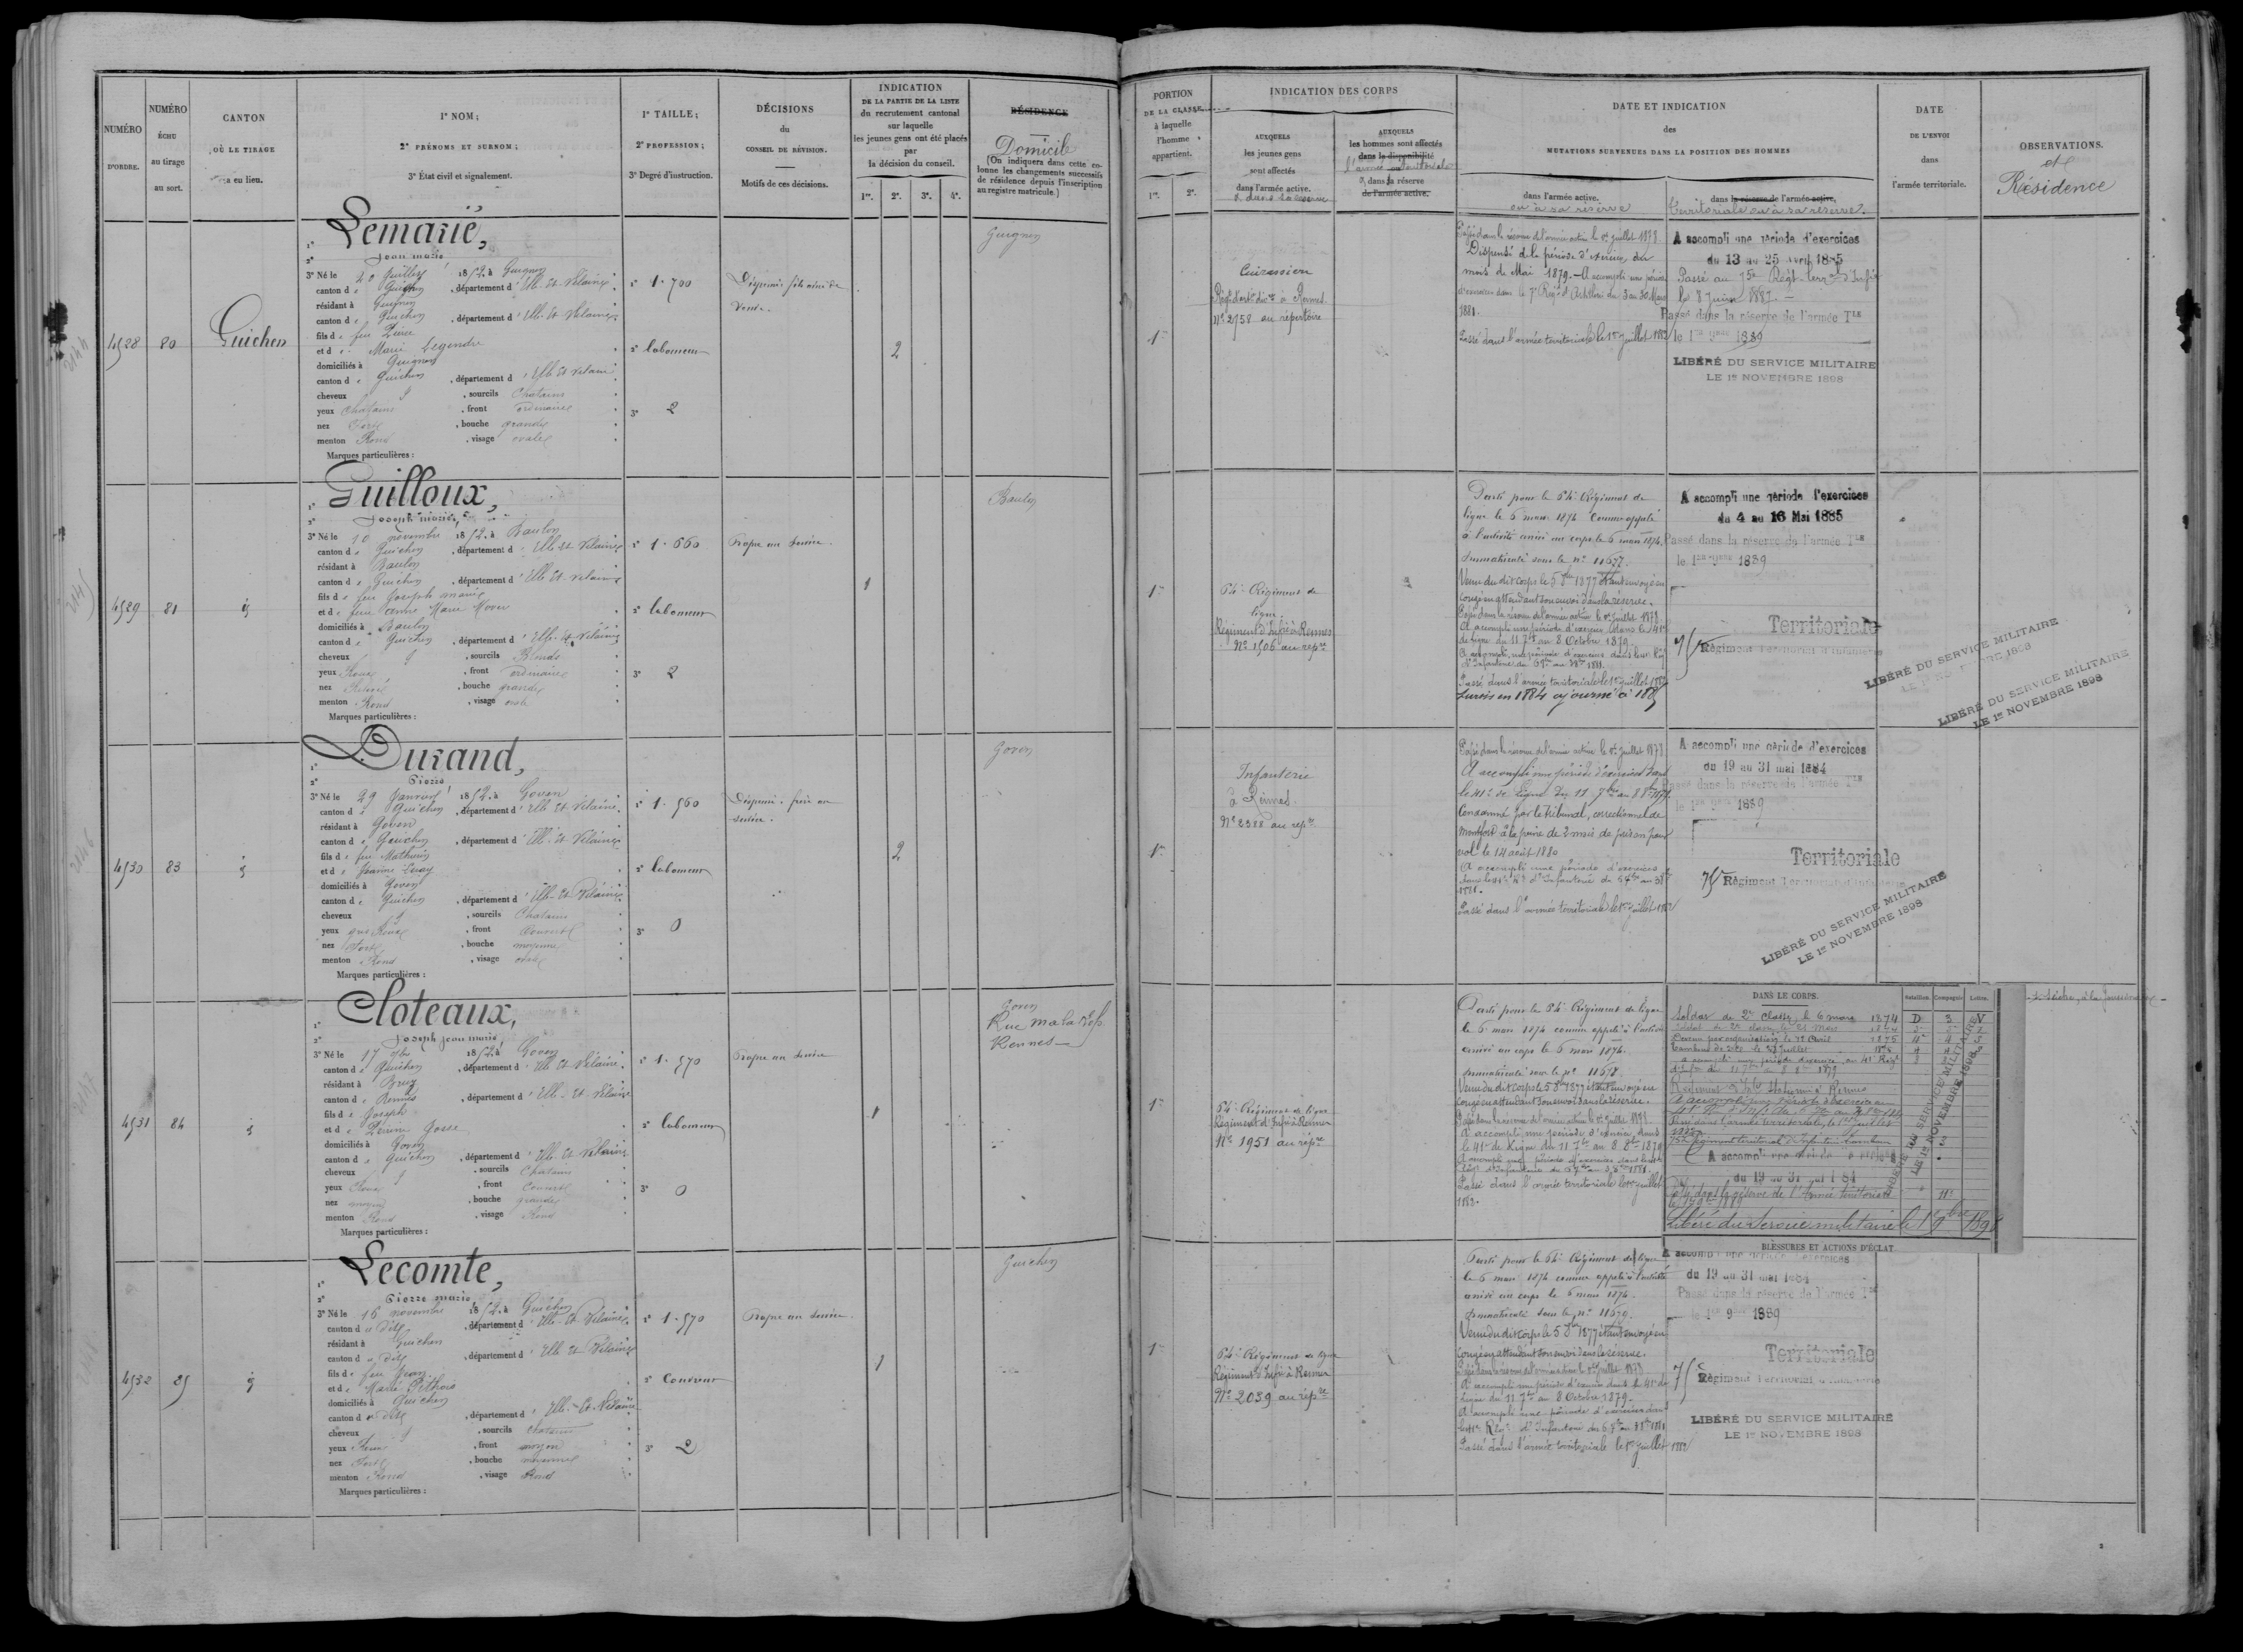 NUMÉRO
D'ORDRE.
NUMÉRO
ÉCHU
au tirage
au sort.
CANTON
OÙ LE TIRAGE
a eu lieu.
1° NOM;
2° PRÉNOMS ET SURNOM;
3° État civil et signalement.
1° TAILLE;
2° PROFESSION;
3° Degré d'instruction.
DÉCISIONS
du
CONSEIL DE RÉVISION.
Motifs de ces décisions.
INDICATION
DE LA PARTIE DE LA LISTE
du recrutement cantonal
sur laquelle
les jeunes gens ont été placés
par
la décision du conseil.
1re. 2e. 3e. 4e.
RÉSIDENCE
Domicile
(On indiquera dans cette co-
lonne les changements successifs
de résidence depuis l'inscription
au registre matricule.)
PORTION
DE LA CLASSE
à laquelle
l'homme
appartient.
1re. 2e.
INDICATION DES CORPS
AUXQUELS
les jeunes gens
sont affectés
dans l'armée active.
& dans sa réserve
AUXQUELS
les hommes sont affectés
dans la disponibilité
l'armée territoriale
& dans la réserve
de l'armée active.
DATE ET INDICATION
des
MUTATIONS SURVENUES DANS LA POSITION DES HOMMES
dans l'armée active.
ou à sa réserve
dans la réserve de l'armée active.
territoriale ou à sa réserve.
DATE
DE L'ENVOI
dans
l'armée territoriale.
OBSERVATIONS.
et
Résidence
4528 80 Guichen
Lemarié,
Jean marie
3° Né le 20 Juillet 1852, à Guignen
canton de Guichen, département d'Ille-Et-Vilaine
résidant à Guignen
canton de Guichen, département d'Ille-Et-Vilaine
fils de feu Pierre
et de Marie Legendre
domiciliés à Guignen
canton de Guichen, département d'Ille Et Vilaine
cheveux, sourcils Chatains
yeux Chatains, front ordinaire
nez Fort, bouche grande
menton Rond, visage ovale
Marques particulières :
1° 1.700
2° laboureur
3° 2
Dispensé fils aîné de
Veuve.
2
Guignen
1re
Cuirassiers
Régt d'artie à Rennes
N° 2758 au répertoire
Passé dans la réserve de l'armée active le 1er Juillet 1878.
Dispensé de la période d'exercices du
mois de Mai 1879. - A accompli une période
d'exercices dans le 7e Régt d'Artillerie du 3 au 30 Mars
1881.
Passé dans l'armée territoriale le 1er juillet 1882
A accompli une période d'exercices
du 13 au 25 avril 1885
Passé au 75e Régt Terral d'Infie
le 8 Juin 1887 -
Passé dans la réserve de l'armée Tle
le 1er 9bre 1889
LIBÉRÉ DU SERVICE MILITAIRE
LE 1er NOVEMBRE 1898
4529 81 id
Guilloux,
Joseph marie,
3° Né le 10 novembre 1852, à Baulon
canton de Guichen, département d'Ille Et Vilaine
résidant à Baulon
canton de Guichen, département d'Ille Et Vilaine
fils de feu Joseph marie
et de feue Anne Marie
domiciliés à Baulon
canton de Guichen, département d'Ille-Et-Vilaine
cheveux, sourcils Blonds
yeux Roux, front ordinaire
nez, bouche grande
menton Rond, visage ovale
Marques particulières :
1° 1.660
2° laboureur
3° 2
Propre au service.
1
Baulon
1re
64e Régiment de
ligne
Régiment d'Infie à Rennes
N° 1506 au repre
Parti pour le 64e Régiment de
ligne le 6 mars 1874 Comme appelé
à l'activité arrivé au corps le 6 mars 1874.
Immatriculé sous le n° 11677.
Venu du dit corps le 5 8bre 1877 étant envoyé en
congé en attendant son envoi dans la réserve.
Passé dans la réserve de l'armée active le 1er Juillet 1878.
A accompli une période d'exercices dans le 41e
de ligne du 11 7bre au 8 Octobre 1879.
Passé dans l'armée territoriale le 1er juillet 1882
Sursis en 1884 ajourné à 1885
A accompli une période d'exercices
du 4 au 16 Mai 1885
Passé dans la réserve de l'armée Tle
le 1er 9bre 1889
Territoriale
75e Régiment Territorial d'Infanterie
LIBÉRÉ DU SERVICE MILITAIRE
LE 1er NOVEMBRE 1898
LIBÉRÉ DU SERVICE MILITAIRE
LE 1er NOVEMBRE 1898
4530 83 id
Durand,
Pierre
3° Né le 29 Janvier 1852, à Goven
canton de Guichen, département d'Ille Et Vilaine
résidant à Goven
canton de Guichen, département d'Ille-Et-Vilaine
fils de feu Mathurin
et de Jeanne
domiciliés à Goven
canton de Guichen, département d'Ille-Et-Vilaine
cheveux, sourcils Chatains
yeux gris, front Couvert
nez Fort, bouche moyenne
menton Rond, visage ovale
Marques particulières :
1° 1.560
2° laboureur
3° 0
Dispensé. frère au
service.
2
Goven
1re
Infanterie
à Rennes
N° 2388 au repre
Passé dans la réserve de l'armée active le 1er Juillet 1878
A accompli une période d'exercices dans
le 41e de ligne du 11 7bre au 8 8bre 1879
Condamné par le Tribunal correctionnel de
Montfort à la peine de 3 mois de prison pour
vol le 14 août 1880
A accompli une période d'exercices
dans le 41e Rt d'Infanterie du 6 7bre au 3 8bre
1881.
Passé dans l'armée territoriale le 1er juillet 1882
A accompli une période d'exercices
du 19 au 31 mai 1884
Passé dans la réserve de l'armée Tle
le 1er 9bre 1889
Territoriale
75e Régiment Territorial d'Infanterie
LIBÉRÉ DU SERVICE MILITAIRE
LE 1er NOVEMBRE 1898
4531 84 id
Cloteaux,
Joseph jean marie
3° Né le 17 7bre 1852, à Goven
canton de Guichen, département d'Ille Et Vilaine
résidant à Bruz
canton de Rennes, département d'Ille-Et-Vilaine
fils de Joseph
et de Perrine Gosse
domiciliés à Goven
canton de Guichen, département d'Ille Et Vilaine
cheveux, sourcils Chatains
yeux Roux, front Couvert
nez moyen, bouche grande
menton Rond, visage Rond
Marques particulières :
1° 1.570
2° laboureur
3° 0
Propre au service
1
Goven
Rennes
1re
64e Régiment de ligne
Régiment d'Infie à Rennes
N° 1951 au repre
Parti pour le 64e Régiment de ligne
le 6 mars 1874 comme appelé à l'activité
arrivé au corps le 6 mars 1874.
Immatriculé sous le n° 11678.
Venu du dit corps le 5 8bre 1877 étant envoyé en
congé en attendant son envoi dans la réserve.
Passé dans la réserve de l'armée active le 1er Juillet 1878
A accompli une période d'exercices dans
le 41e de Ligne du 11 7bre au 8 8bre 1879
Passé dans l'armée territoriale le 1er juillet
1882.
DANS LE CORPS.
Bataillon. Compagnie. Lettre.
Soldat de 2e classe le 6 mars 1874 D 3 N
A accompli une période d'exercices
du 19 au 31 mai 1884
Passé dans la réserve de l'Armée territoriale
Libéré du Service militaire le 1er 9bre 1898
LIBÉRÉ DU SERVICE MILITAIRE
LE 1er NOVEMBRE 1898
BLESSURES ET ACTIONS D'ÉCLAT
4532 85 id
Lecomte,
Pierre marie
3° Né le 16 novembre 1852, à Guichen
canton de dit, département d'Ille-Et-Vilaine
résidant à Guichen
canton de dit, département d'Ille Et Vilaine
fils de feu Jean
et de Marie Pithois
domiciliés à Guichen
canton de dit, département d'Ille-Et-Vilaine
cheveux, sourcils Chatains
yeux Roux, front moyen
nez Fort, bouche moyenne
menton Rond, visage Rond
Marques particulières :
1° 1.570
2° Couvreur
3° 2
Propre au service
1
Guichen
1re
64e Régiment de ligne
Régiment d'Infie à Rennes
N° 2039 au repre
Parti pour le 64e Régiment de ligne
le 6 mars 1874 comme appelé à l'activité
arrivé au corps le 6 mars 1874.
Immatriculé sous le n° 11679.
Venu du dit corps le 5 8bre 1877 étant envoyé en
congé en attendant son envoi dans la réserve.
Passé dans la réserve de l'armée active le 1er Juillet 1878
A accompli une période d'exercices dans le 41e de
ligne du 11 7bre au 8 Octobre 1879.
A accompli une période d'exercices dans
le 41e Rgt d'Infanterie du 6 7bre au 3 8bre 1881
Passé dans l'armée territoriale le 1er juillet 1882
A accompli une période d'exercices
du 19 au 31 mai 1884
Passé dans la réserve de l'armée Tle
le 1er 9bre 1889
Territoriale
75e Régiment Territorial d'Infanterie
LIBÉRÉ DU SERVICE MILITAIRE
LE 1er NOVEMBRE 1898